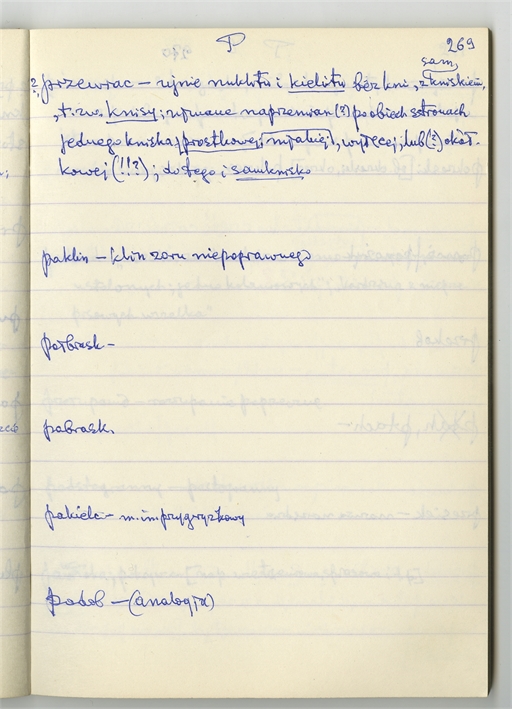 P
269
sam,
? przewrac – ujnie nukłtu i kielitu bez kni, z kniskiem,
t. zw. knisy; używane naprzemian (?) po obiech stronach
jednego kniska, prostkowej, mijalnej, wyłęcej, lub (?) okáł-
kowej (!!?); do tego i samknisko
paklin – klin zoru niepoprawnego
połbrask –
pabrask.
pakiela – m. im przygryzkowy
podob – (analogja)